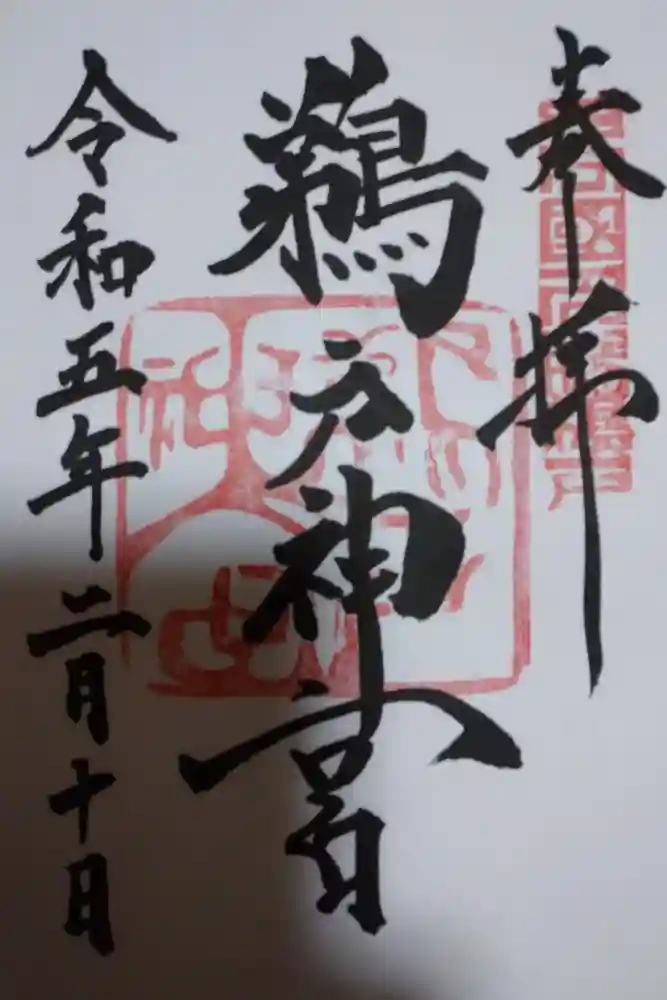 奉拝
鵜戸神宮
令和五年二月十日